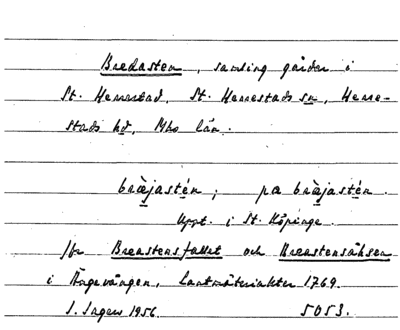 Bredasten, samling gårdar i
St. Herrestad, St. Herrestads sn, Herre-
stads hd, Mho län.
bræjastén; pa bræjastén.
Uppt. i St. Köpinge.
Jfr Breastensfallet och Breastensåksen
i Ängavången, Lantmäteriakter 1769.
S. Ingers 1956. 5053.